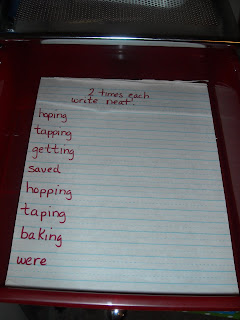 2 times each
write neat.
hoping
tapping
getting
saved
hopping
taping
baking
were